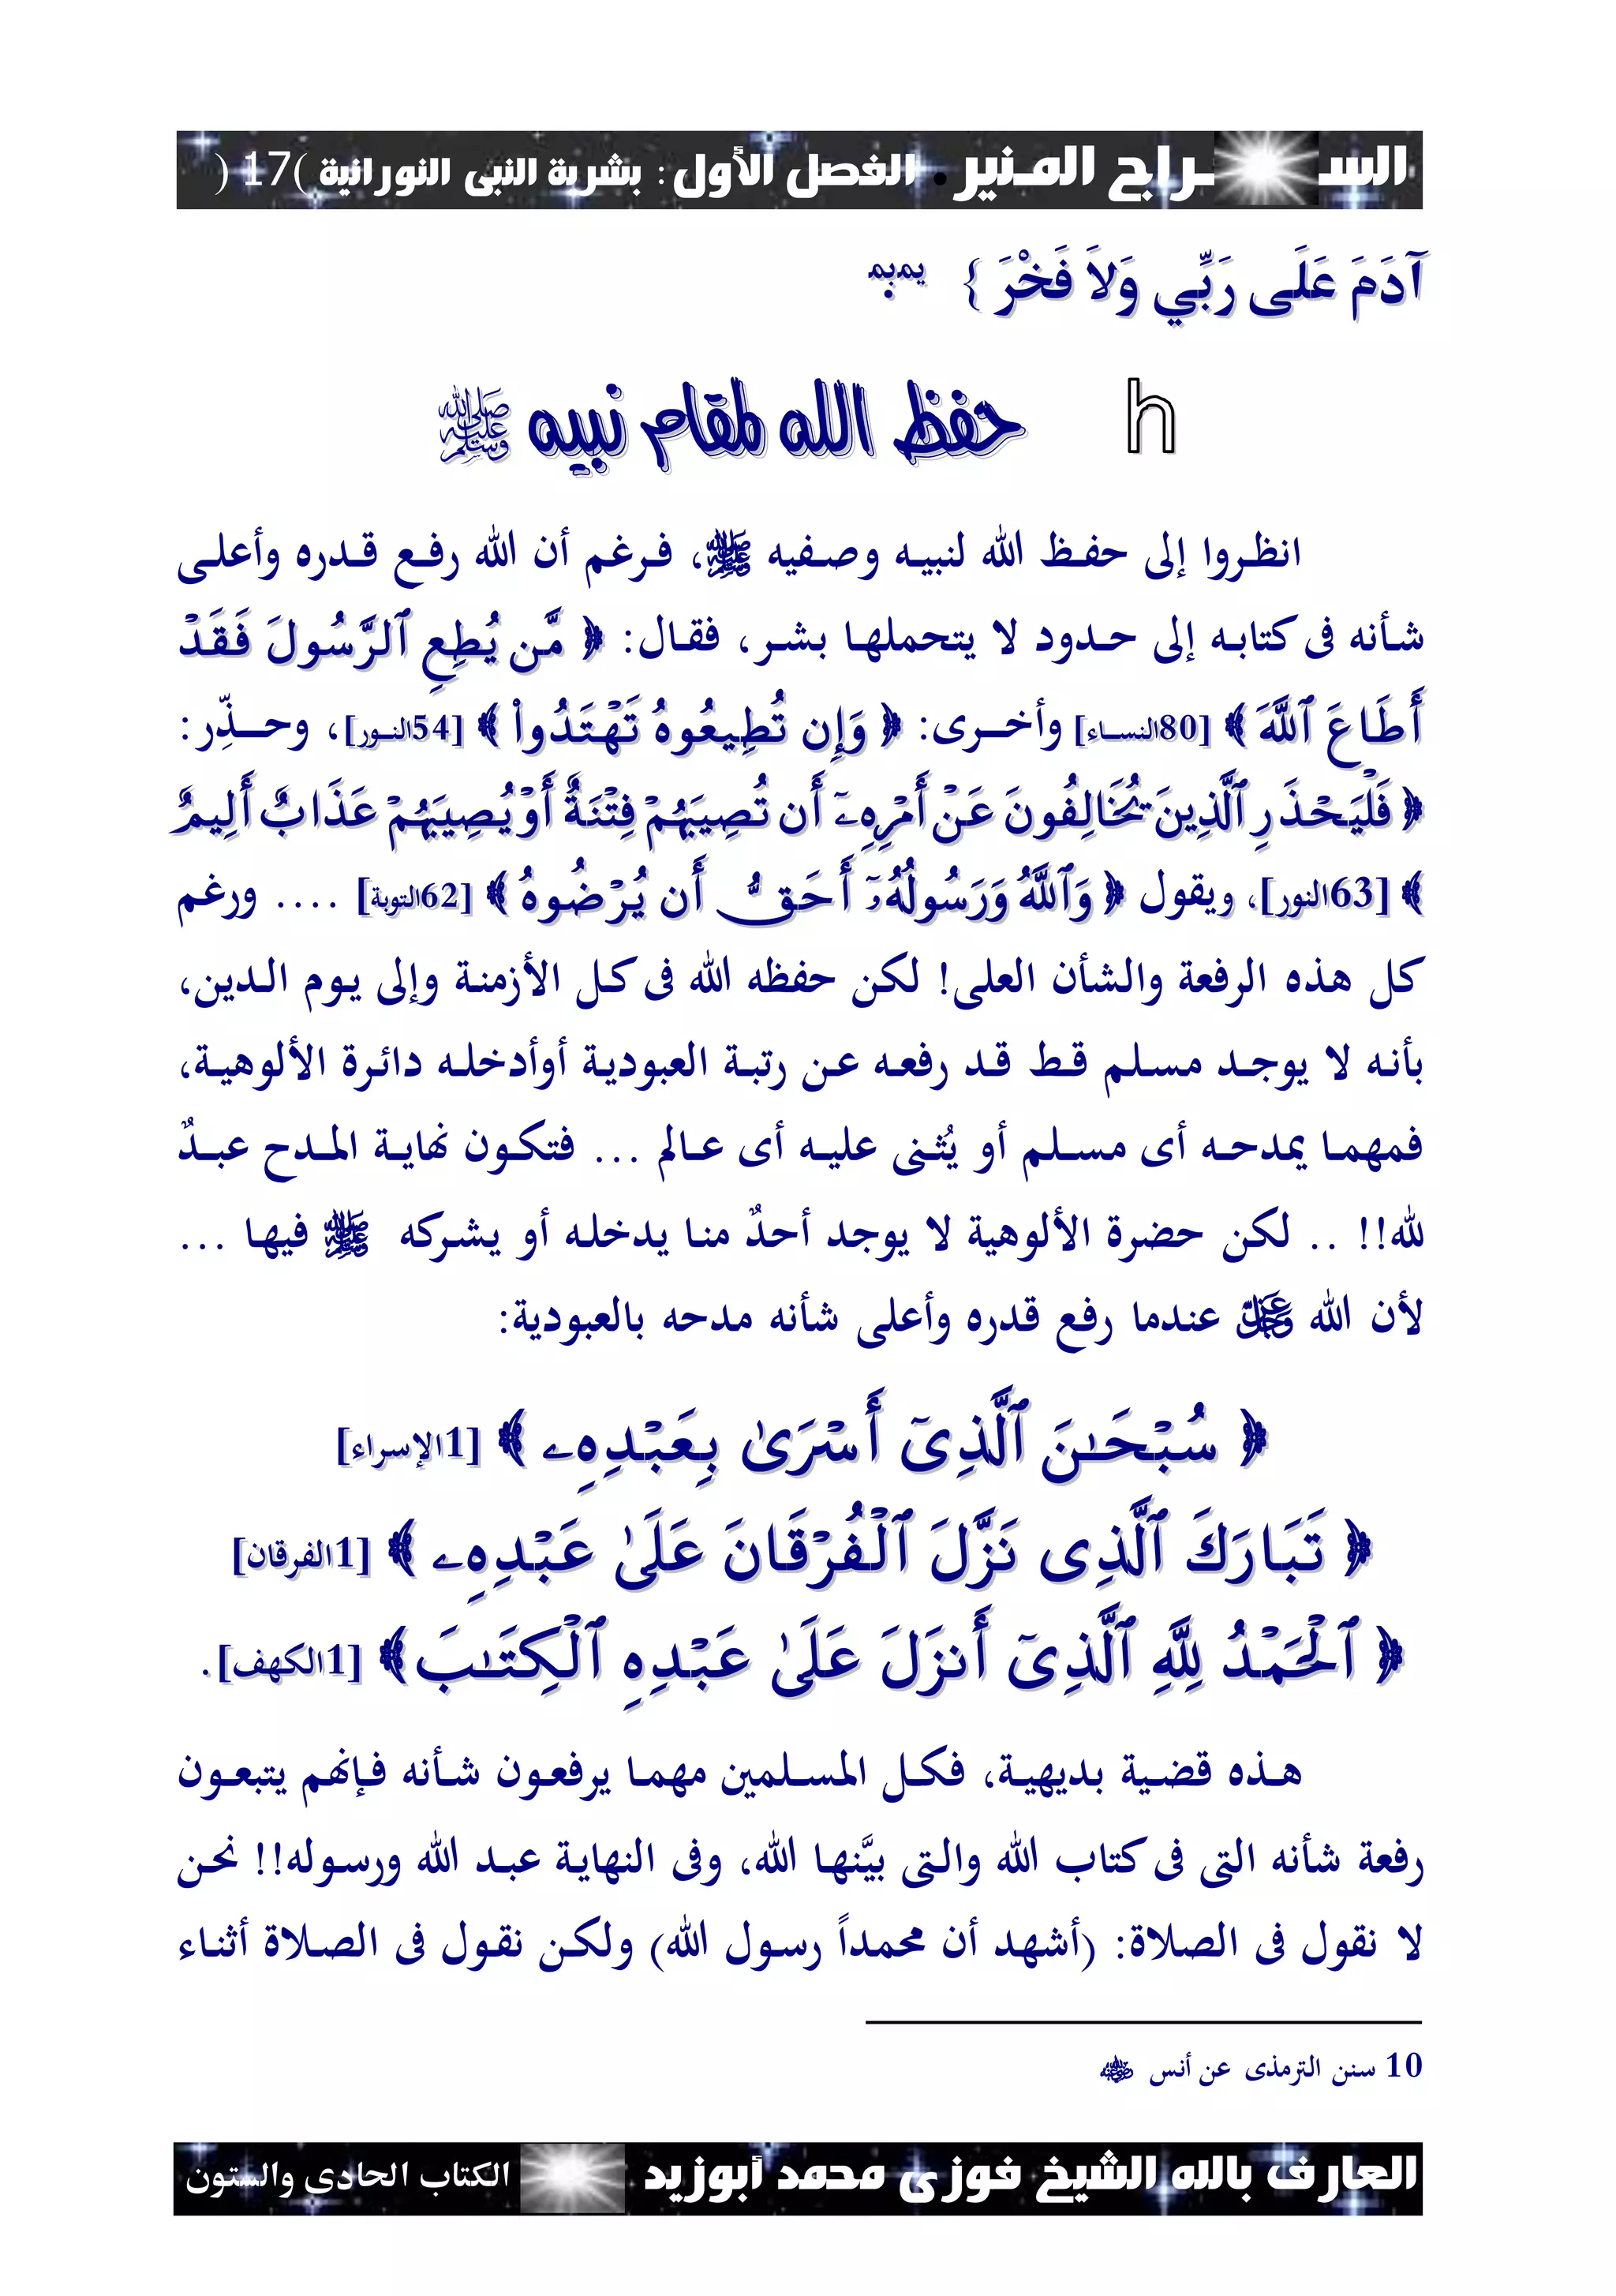 الســراج المـنير. الفصل الأول: بشرية النبى النورانية (17)
آدَمَ عَلَى رَبِّي وَلاَ فَخْرَ }
حفظ الله لمقام نبيه ﷺ
انظروا إلى حفظ الله لنبيه وصفيه ﷺ، فرغم أن الله رفع قدره وأعلى
شأنه فى كتابه إلى حدود لا يتحملها بشر، فقال: ﴿ مَّن يُطِعِ ٱلرَّسُولَ فَقَدْ
أَطَاعَ ٱللَّهَ ﴾ [80النساء] وأخرى: ﴿ وَإِن تُطِيعُوهُ تَهْتَدُوا۟ ﴾ [54النور]، وحذِّر:
﴿ فَلْيَحْذَرِ ٱلَّذِينَ يُخَالِفُونَ عَنْ أَمْرِهِۦٓ أَن تُصِيبَهُمْ فِتْنَةٌ أَوْ يُصِيبَهُمْ عَذَابٌ أَلِيمٌ
﴾ [63النور]، ويقول ﴿ وَٱللَّهُ وَرَسُولُهُۥٓ أَحَقُّ أَن يُرْضُوهُ ﴾ [62التوبة] .... ورغم
كل هذه الرفعة والشأن العلى! لكن حفظه الله فى كل الأزمنة وإلى يوم الدين،
بأنه لا يوجد مسلم قط قد رفعه عن رتبة العبودية أوأدخله دائرة الألوهية،
فمهما يمدحه أى مسلم أو يُثنى عليه أى عالم ... فتكون نهاية المدح عبدٌ
لله!! .. لكن حضرة الألوهية لا يوجد أحدٌ منا يدخله أو يشركه ﷺ فيها ...
لأن الله عز وجل عندما رفع قدره وأعلى شأنه مدحه بالعبودية:
﴿ سُبْحَـٰنَ ٱلَّذِىٓ أَسْرَىٰ بِعَبْدِهِۦ ﴾ [1الإسراء]
﴿ تَبَارَكَ ٱلَّذِى نَزَّلَ ٱلْفُرْقَانَ عَلَىٰ عَبْدِهِۦ ﴾ [1الفرقان]
﴿ ٱلْحَمْدُ لِلَّهِ ٱلَّذِىٓ أَنزَلَ عَلَىٰ عَبْدِهِ ٱلْكِتَـٰبَ﴾ [1الكهف].
هذه قضية بديهية، فكل المسلمين مهما يرفعون شأنه فإنهم يتبعون
رفعة شأنه التى فى كتاب الله والتى بيَّنها الله، وفى النهاية عبد الله ورسوله!! نحن
لا نقول فى الصلاة: (أشهد أن محمداً رسول الله) ولكن نقول فى الصلاة أثناء
10 سنن الترمذى عن أنس
العارف بالله الشيخ فوزى محمد أبوزيد الكتاب الحادى والستون